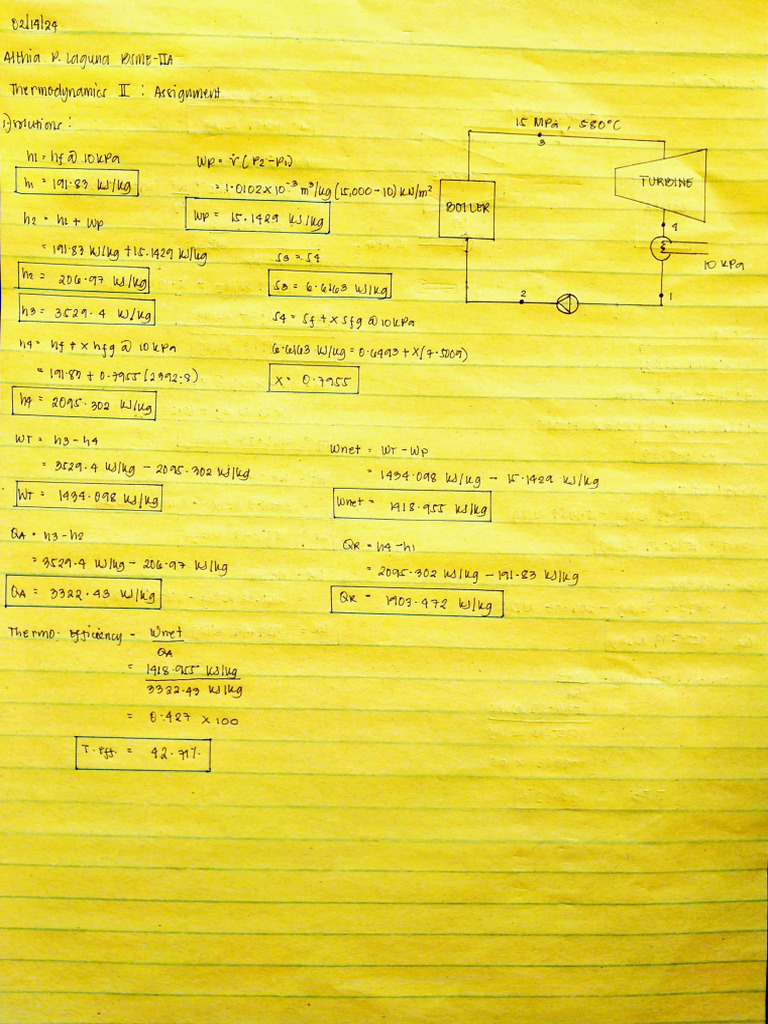 02/14/24
Althia P. Laguna BSME-IIA
Thermodynamics II : Assignment
1.) solutions :
15 MPa , 580°C
3
TURBINE
BOILER
4
10 kPa
2
1
h1 = hf @ 10 kPa
h1 = 191.83 kJ/kg
Wp = v (P2-P1)
= 1.0102 x 10⁻³ m³/kg (15,000 - 10) kN/m²
Wp = 15.1429 kJ/kg
h2 = h1 + Wp
= 191.83 kJ/kg + 15.1429 kJ/kg
h2 = 206.97 kJ/kg
h3 = 3529.4 kJ/kg
S3 = S4
S3 = 6.6163 kJ/kg
S4 = Sf + x Sfg @ 10 kPa
6.6163 kJ/kg = 0.6493 + x (7.5009)
x = 0.7955
h4 = hf + x hfg @ 10 kPa
= 191.83 + 0.7955 (2392.8)
h4 = 2095.302 kJ/kg
WT = h3 - h4
= 3529.4 kJ/kg - 2095.302 kJ/kg
WT = 1434.098 kJ/kg
Wnet = WT - Wp
= 1434.098 kJ/kg - 15.1429 kJ/kg
Wnet = 1418.955 kJ/kg
QA = h3 - h2
= 3529.4 kJ/kg - 206.97 kJ/kg
QA = 3322.43 kJ/kg
QR = h4 - h1
= 2095.302 kJ/kg - 191.83 kJ/kg
QR = 1903.472 kJ/kg
Thermo. Efficiency = Wnet
QA
= 1418.955 kJ/kg
3322.43 kJ/kg
= 0.427 x 100
T. eff. = 42.71%